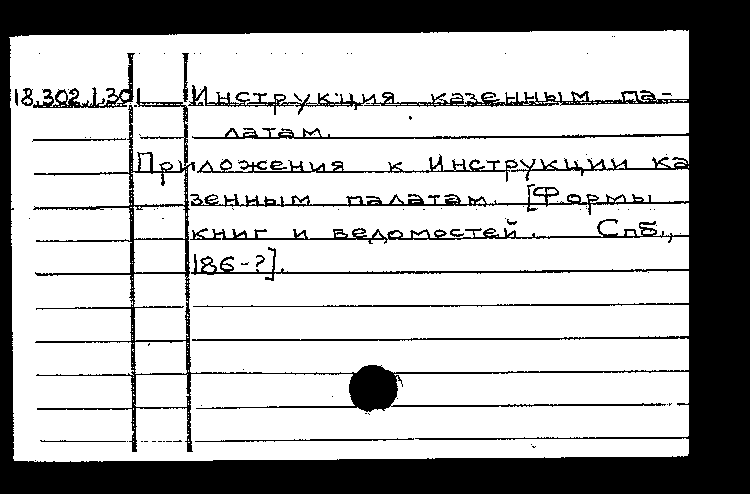 18.302.1.301 Инструкция казенным па-
латам.
Приложения к Инструкции ка
зенным палатам. [Формы
книг и ведомостей. Спб.,
186-?].